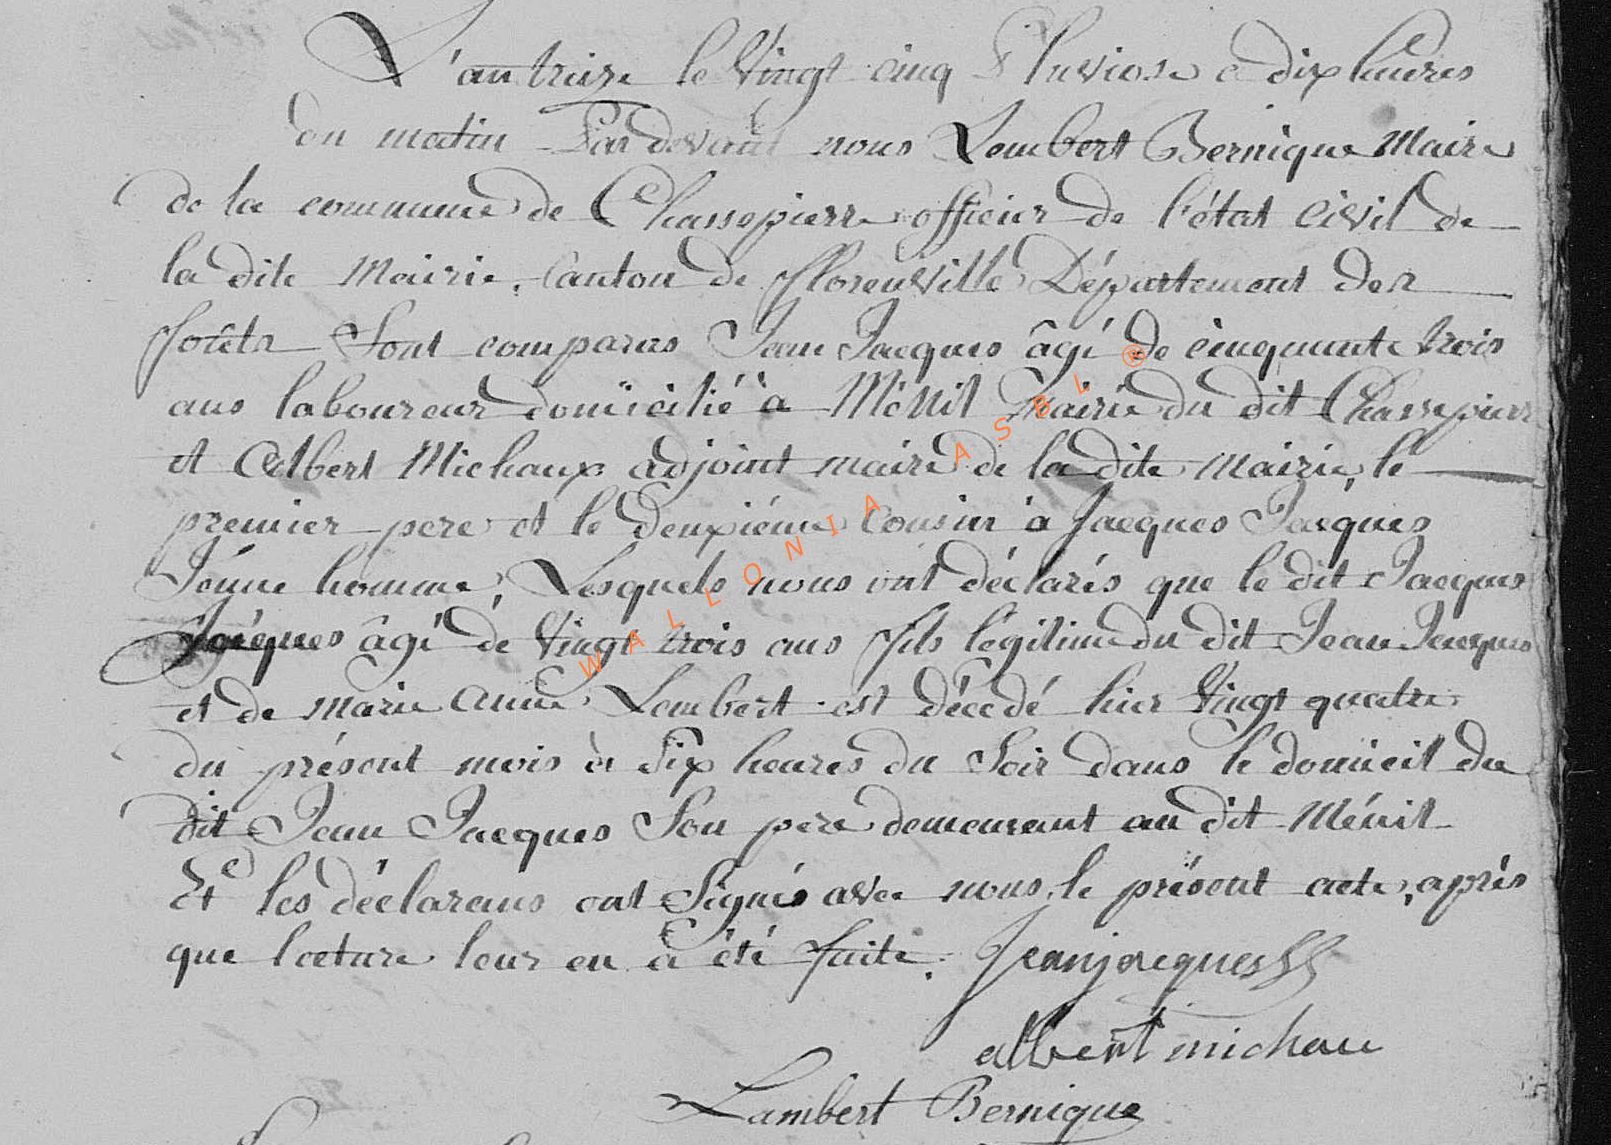 L'an treize le Vingt cinq Pluviose a dix heures
du matin Par devant nous Lambert Bernique Maire
de la commune de Chassepierre officier de l'état Civil de
la dite Mairie, Canton de Florenville Département des
forêts Sont comparus Jean Jacques âgé de cinquante trois
ans laboureur domicilié à Ménil Mairie du dit Chassepierre
et Albert Michaux adjoint maire de la dite Mairie, le
premier pere et le deuxiéme Cousin à Jacques Jacques
Jéune homme, Lesquels nous ont déclarés que le dit Jacques
Jacques âgé de Vingt trois ans fils légitime du dit Jean Jacques
et de Marie Anne Lambert est décedé hier Vingt quatre
du présent mois à Six heures du Soir dans le domicil du
dit Jean Jacques Son pere demeurant au dit Ménil
Et les déclarans ont Signés avec nous, le présent acte, après
que lecture leur en à été faite. Jeanjacques
albert michau
Lambert Bernique
WALLONIA ASBL ®